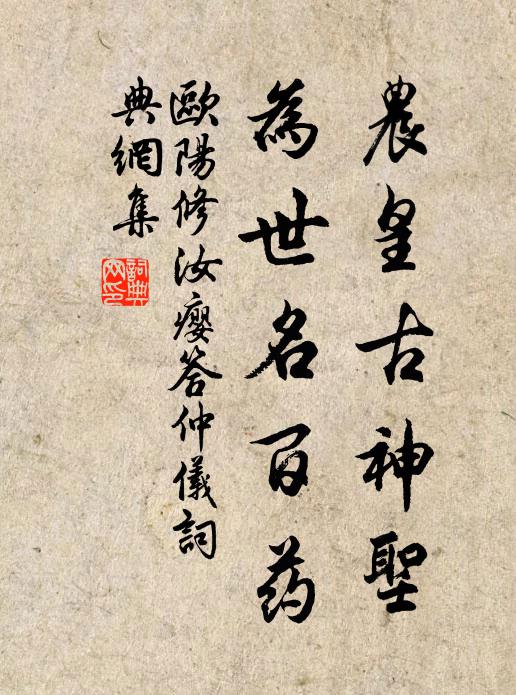 農皇古神聖
為世名百药
歐陽修汝癭答仲儀詞
典網集
詞典网印